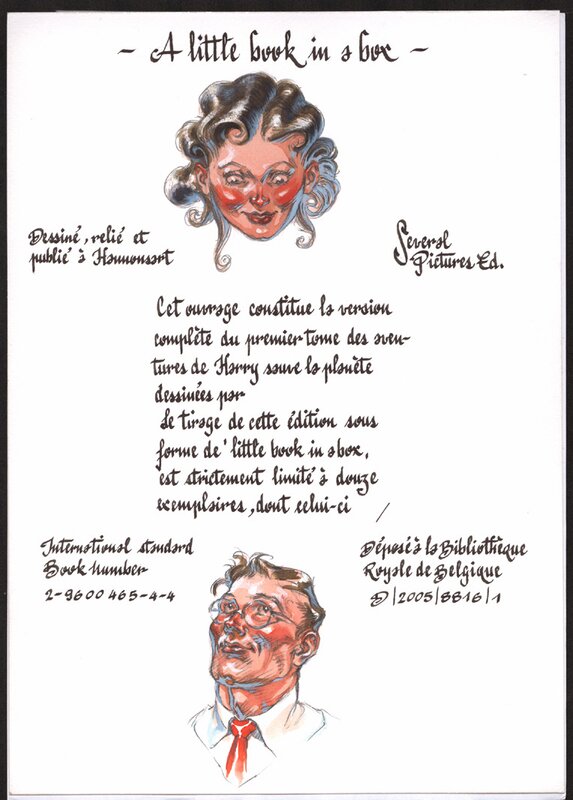 - A little book in a box -
Dessiné, relié et
publié à Hannonsart
Several
Pictures Ed.
Cet ouvrage constitue la version
complète du premier tome des aven-
tures de Harry sauve la planète
dessinées par
Le tirage de cette édition sous
forme de' little book in a box,
est strictement limité à douze
exemplaires, dont celui-ci /
International standard
Book number
2-9600465-4-4
Déposé à la Bibliothèque
Royale de Belgique
D/2005/8816/1